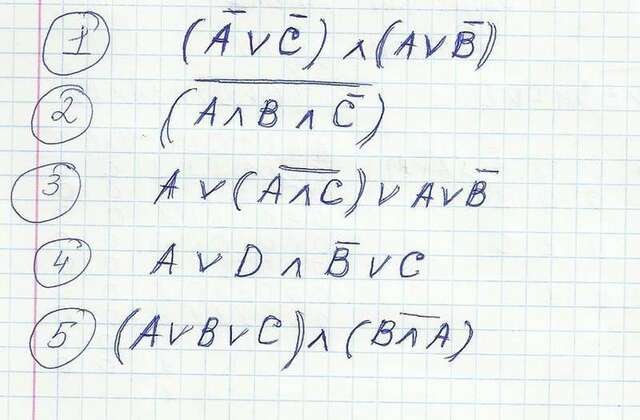 1 (A̅ ∨ C̅) ∧ (A ∨ B̅)
2 (A̅ ̅∧̅ ̅B̅ ̅∧̅ ̅C̅̅)
3 A ∨ (A̅ ̅∧̅ ̅C̅) ∨ A ∨ B̅
4 A ∨ D ∧ B̅ ∨ C
5 (A ∨ B ∨ C) ∧ (B̅ ̅∧̅ ̅A̅)